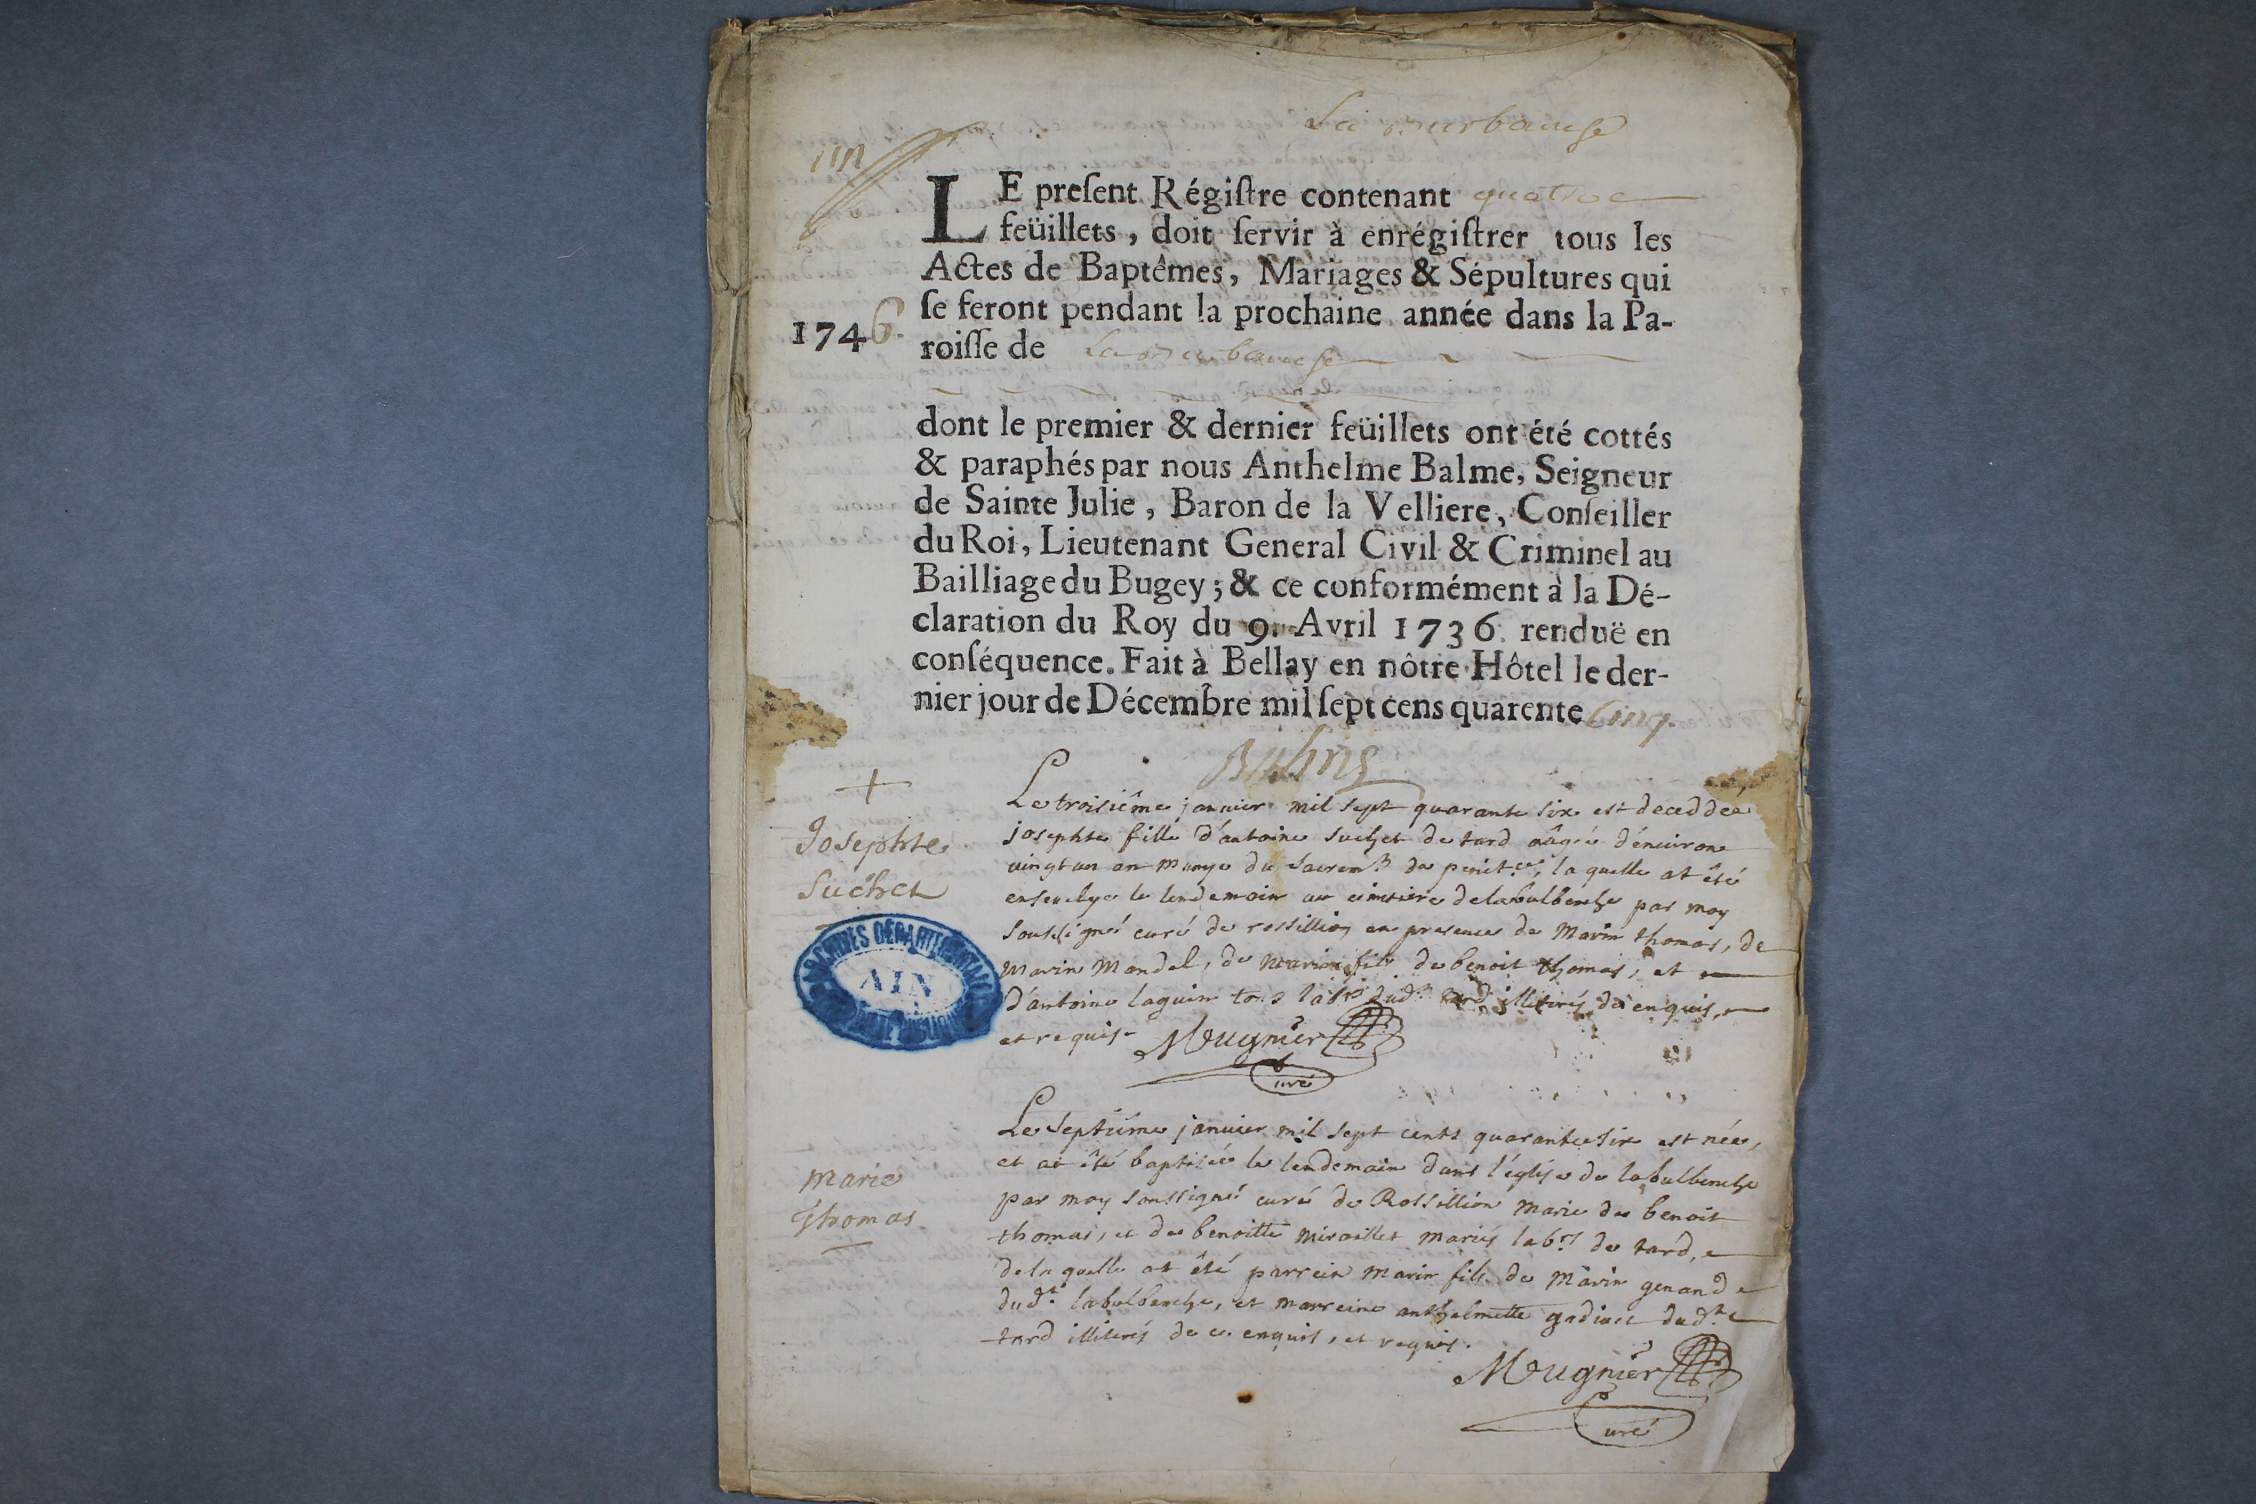 un
LE preſent Régiſtre contenant quatre
feüillets, doit ſervir à enrégiſtrer tous les
Actes de Baptêmes, Mariages & Sépultures qui
ſe feront pendant la prochaine année dans la Pa-
1746.
roiſſe de
dont le premier & dernier feüillets ont été cottés
& paraphés par nous Anthelme Balme, Seigneur
de Sainte Julie, Baron de la Velliere, Conſeiller
du Roi, Lieutenant General Civil & Criminel au
Bailliage du Bugey; & ce conformément à la Dé-
claration du Roy du 9. Avril 1736. renduë en
conſéquence. Fait à Bellay en nôtre Hôtel le der-
nier jour de Décembre mil ſept cens quarente Cinq.
+
Josephte
Suchet
Le troisiême janvier mil sept quarante six est deceddée
josephte fille d'antoine suchet de tard aâgée d'environ
vingt un an munye du sacrem.t de penit.ce, la quelle at êté
ensevelye le lendemain au cimitiere de labulbenche par moy
soussigné curé de rossillion en presence de Marin thomas, de
Marin Mandel, de marin fils de benoit thomas, et
d'antoine laguin tous dud.t tard illiterés de enquis,
et requis. Mougnier
curé
ARCHIVES DÉPARTEMENTALES
AIN
Marie
Thomas
Le septiême janvier mil sept cents quarante six est née,
et at êté baptisée le lendemain dans l'église de labulbenche
par moy soussigné curé de Rossillion marie de benoit
thomas, et de benoitte miraillet mariés lab.rs de tard,
de la quelle at êté parrein Marin fils de Marin genand
dud.t labulbenche, et marreine anthelmette gadiolet dud.t
tard illiterés de ce enquis, et requis.
Mougnier
curé